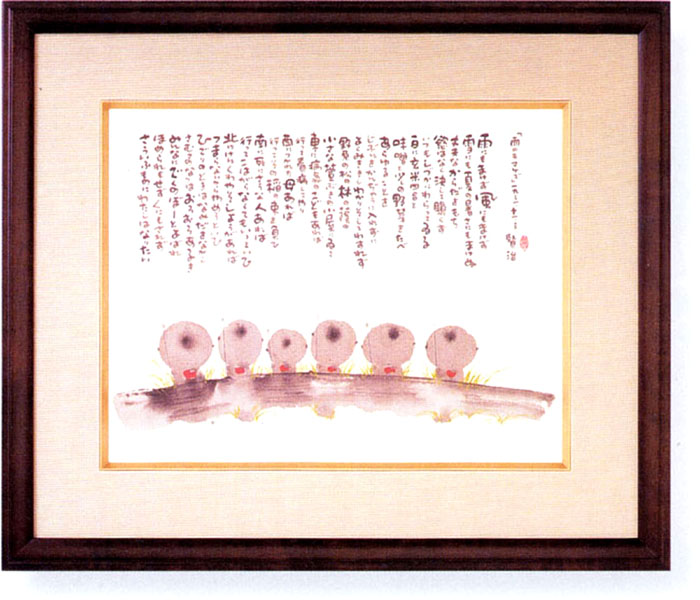 賢治
雨にもまけず 風にもまけず
雪にも夏の暑さにもまけぬ
丈夫なからだをもち
慾はなく決して瞋らず
いつもしづかにわらってゐる
一日に玄米四合と
味噌と少しの野菜をたべ
あらゆることを
じぶんをかんじょうに入れずに
よくみききしわかりそしてわすれず
野原の松の林の蔭の
小さな萱ぶきの小屋にゐて
東に病気のこどもあれば
行って看病してやり
西につかれた母あれば
行ってその稲の束を負ひ
南に死にさうな人あれば
行ってこはがらなくてもいゝといひ
北にけんくゎやそしょうがあれば
つまらないからやめろといひ
ひどりのときはなみだをながし
さむさのなつはおろおろあるき
みんなにでくのぼーとよばれ
ほめられもせずくにもされず
さういふものにわたしはなりたい